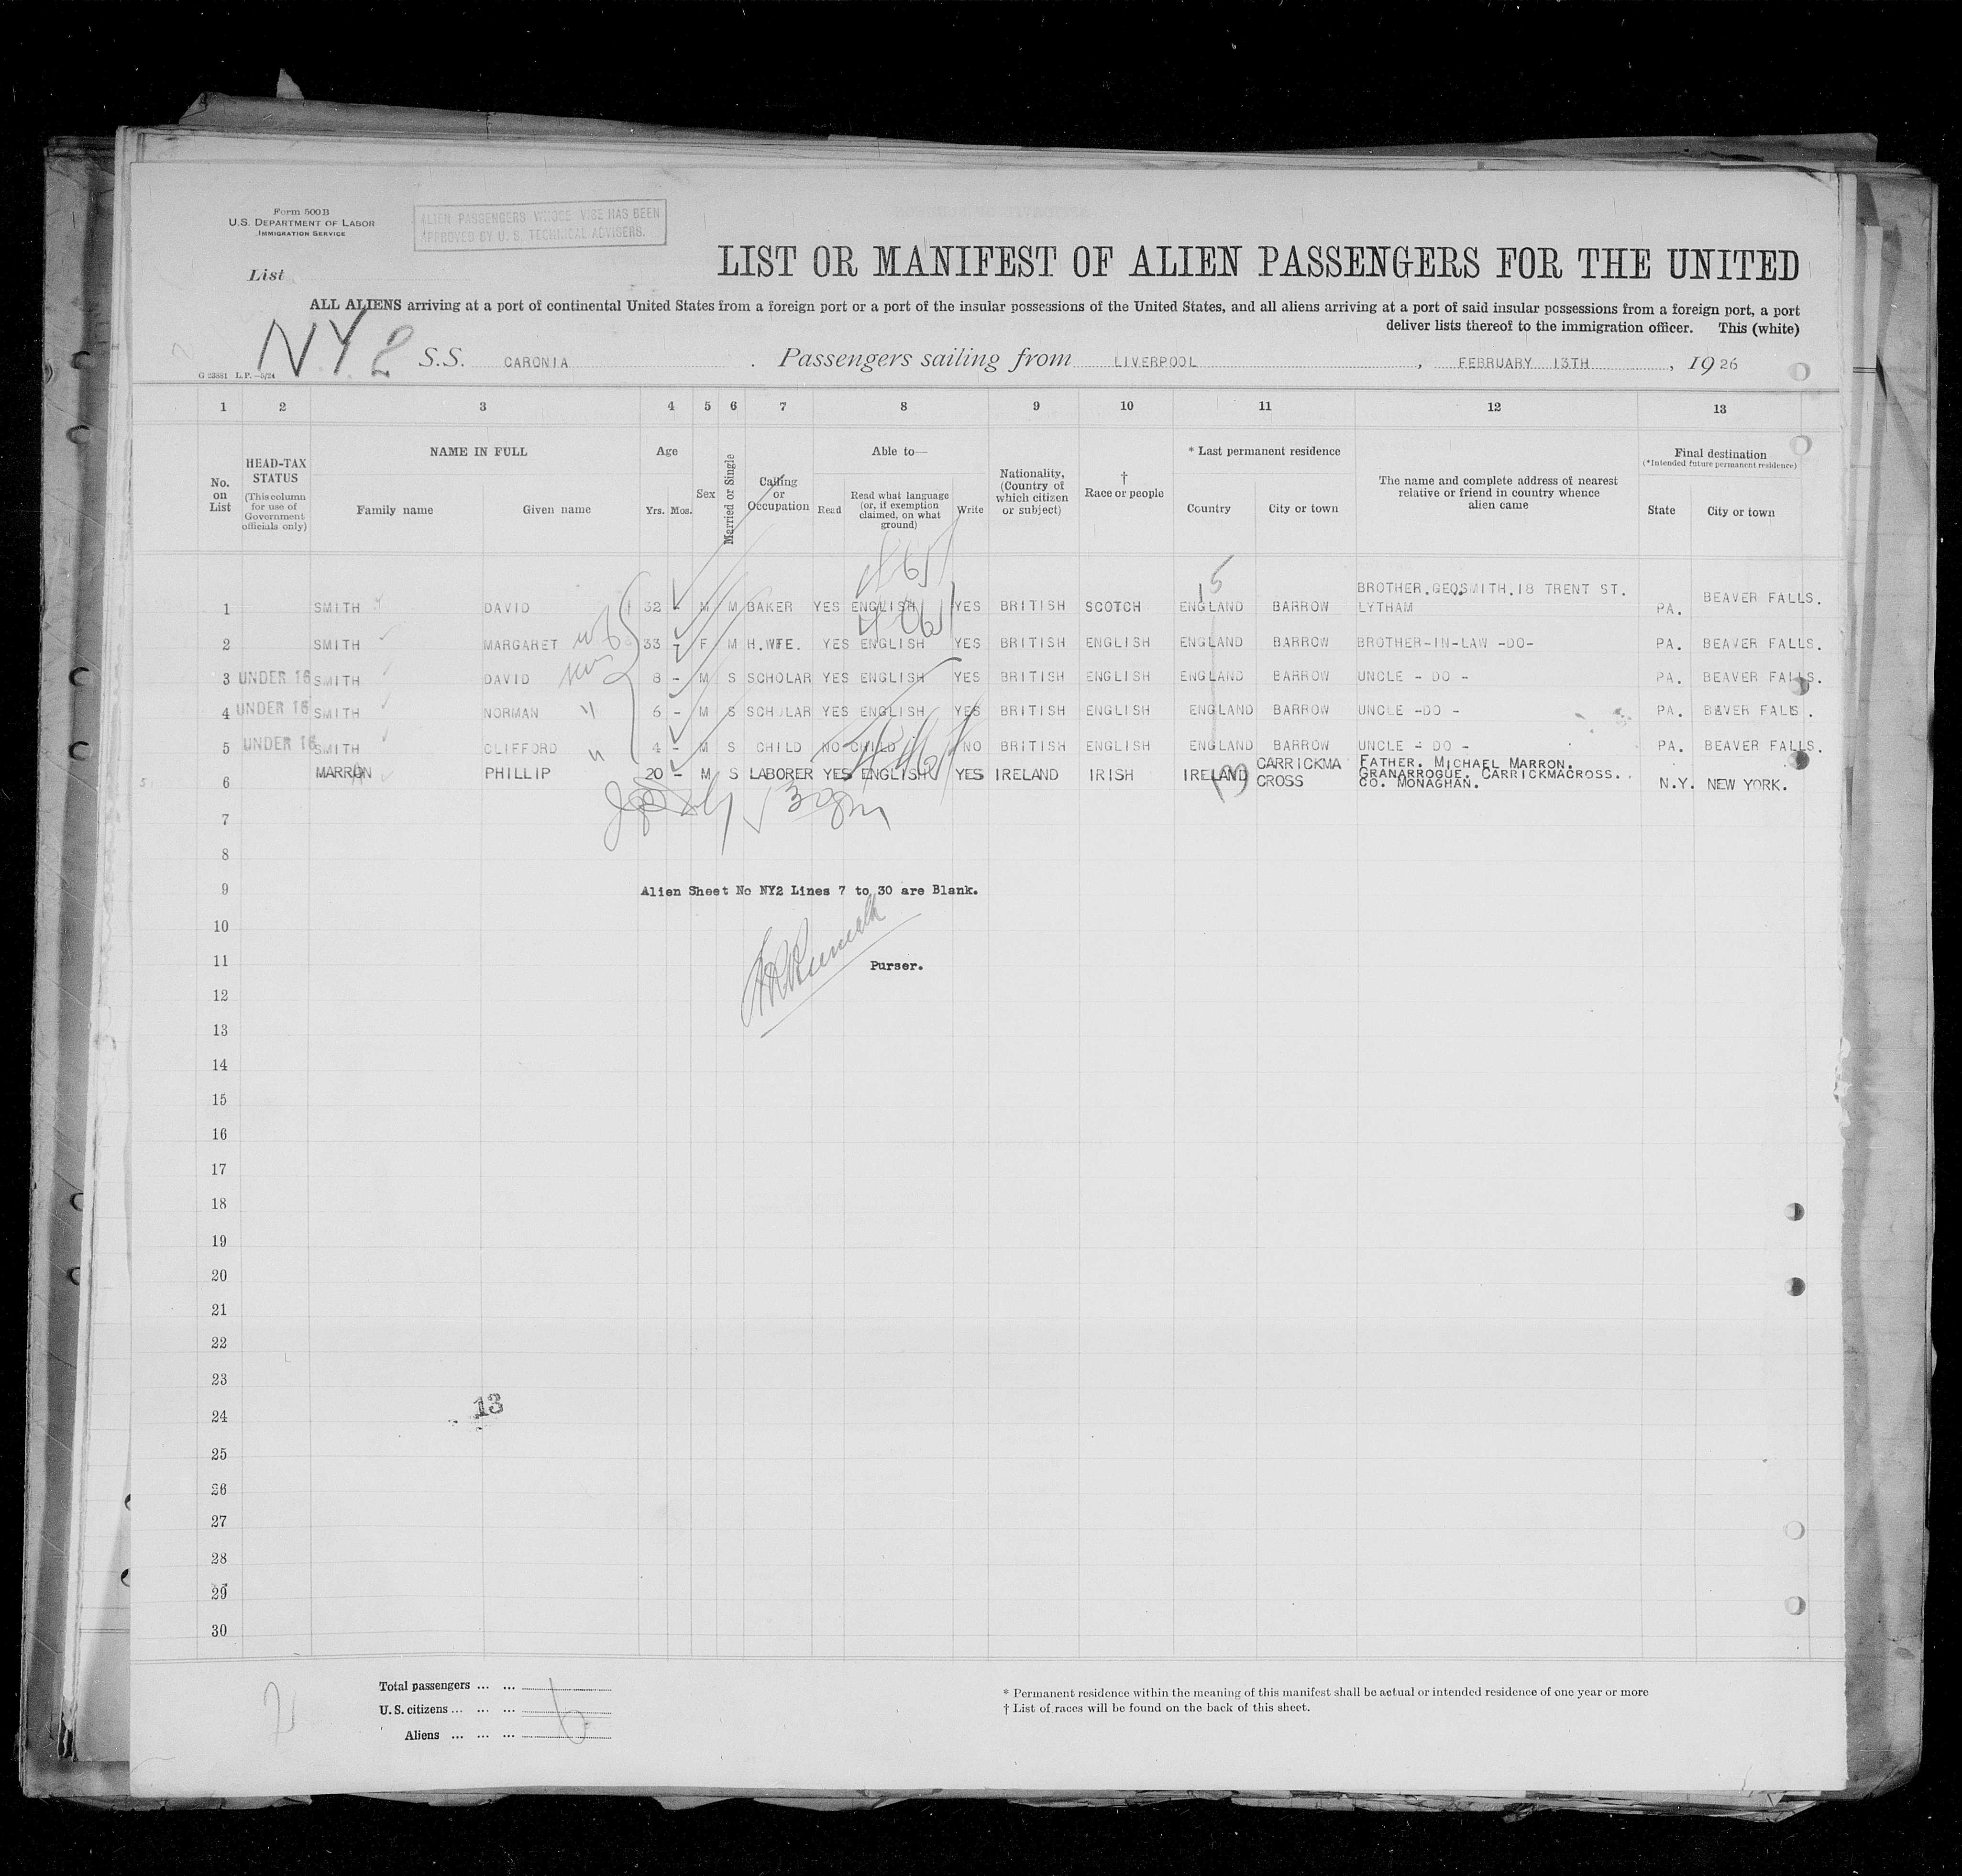 Form 500B
U.S. DEPARTMENT OF LABOR
IMMIGRATION SERVICE
ALIEN PASSENGERS WHOSE VISE HAS BEEN
APPROVED BY U. S. TECHNICAL ADVISERS.
LIST OR MANIFEST OF ALIEN PASSENGERS FOR THE UNITED
List
ALL ALIENS arriving at a port of continental United States from a foreign port or a port of the insular possessions of the United States, and all aliens arriving at a port of said insular possessions from a foreign port, a port
deliver lists thereof to the immigration officer. This (white)
NY 2 S.S. CARONIA . Passengers sailing from LIVERPOOL , FEBRUARY 13TH , 19 26
G 23881 L.P.—5/24
1 2 3 4 5 6 7 8 9 10 11 12 13
No. on List
HEAD-TAX STATUS
(This column for use of Government officials only)
NAME IN FULL
Family name Given name
Age
Yrs. Mos.
Sex
Married or Single
Calling or Occupation
Able to—
Read
Read what language (or, if exemption claimed, on what ground)
Write
Nationality, (Country of which citizen or subject)
† Race or people
* Last permanent residence
Country City or town
The name and complete address of nearest relative or friend in country whence alien came
Final destination
(*Intended future permanent residence)
State City or town
15
1 SMITH DAVID 32 - M M BAKER YES ENGLISH YES BRITISH SCOTCH ENGLAND BARROW BROTHER.GEO.SMITH.18 TRENT ST. LYTHAM PA. BEAVER FALLS.
2 SMITH MARGARET wf 33 - F M H.WFE. YES ENGLISH YES BRITISH ENGLISH ENGLAND BARROW BROTHER-IN-LAW -DO- PA. BEAVER FALLS.
3 UNDER 16 SMITH DAVID 8 - M S SCHOLAR YES ENGLISH YES BRITISH ENGLISH ENGLAND BARROW UNCLE - DO - PA. BEAVER FALLS.
4 UNDER 16 SMITH NORMAN " 6 - M S SCHOLAR YES ENGLISH YES BRITISH ENGLISH ENGLAND BARROW UNCLE -DO - PA. BEAVER FALLS.
5 UNDER 16 SMITH CLIFFORD " 4 - M S CHILD NO CHILD NO BRITISH ENGLISH ENGLAND BARROW UNCLE - DO - PA. BEAVER FALLS.
6 MARRON PHILLIP 20 - M S LABORER YES ENGLISH YES IRELAND IRISH IRELAND CARRICKMA CROSS FATHER. MICHAEL MARRON. GRANARROGUE. CARRICKMACROSS. CO. MONAGHAN. N.Y. NEW YORK.
7
8
9 Alien Sheet No NY2 Lines 7 to 30 are Blank.
10
11 Purser.
12
13
14
15
16
17
18
19
20
21
22
23
13
24
25
26
27
28
29
30
Total passengers ... ...
U.S. citizens ... ... ... 6
Aliens ... ... ...
* Permanent residence within the meaning of this manifest shall be actual or intended residence of one year or more
† List of races will be found on the back of this sheet.